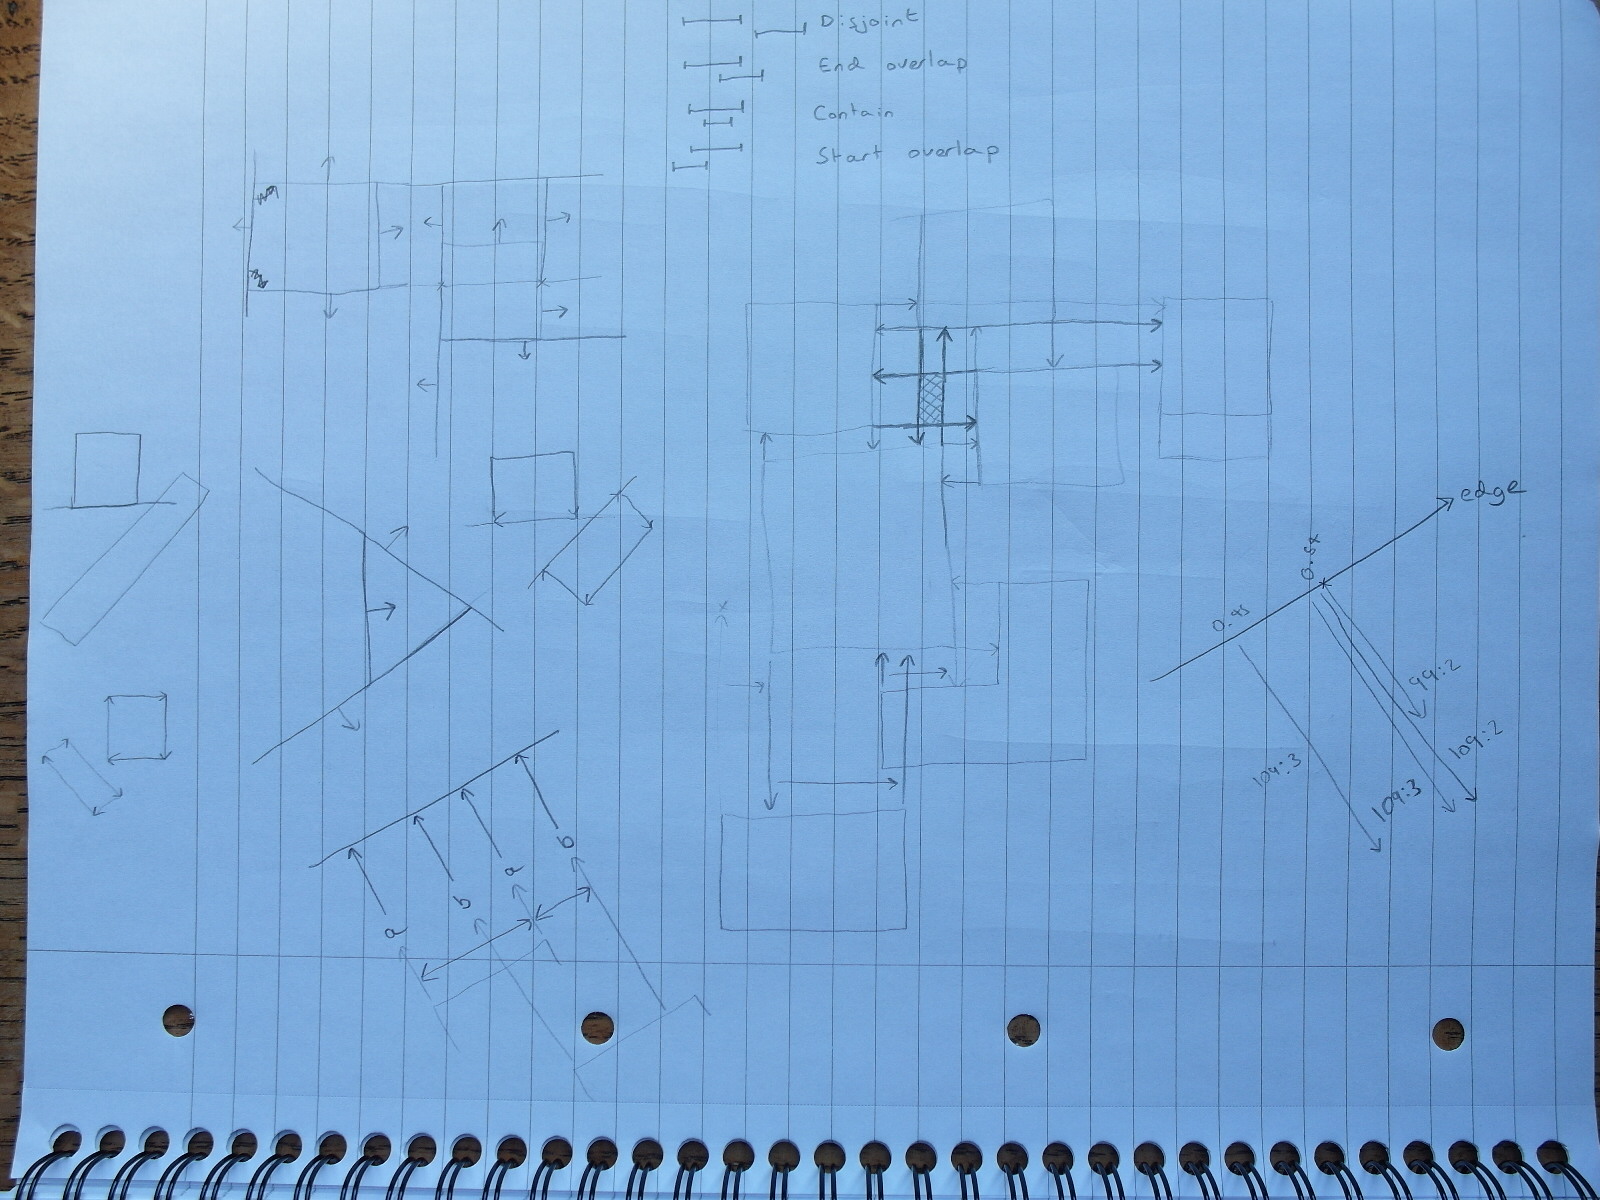 Disjoint
End overlap
Contain
Start overlap
edge
0.5x
0.45
99:2
109:2
109:3
109:3
a
b
a
b